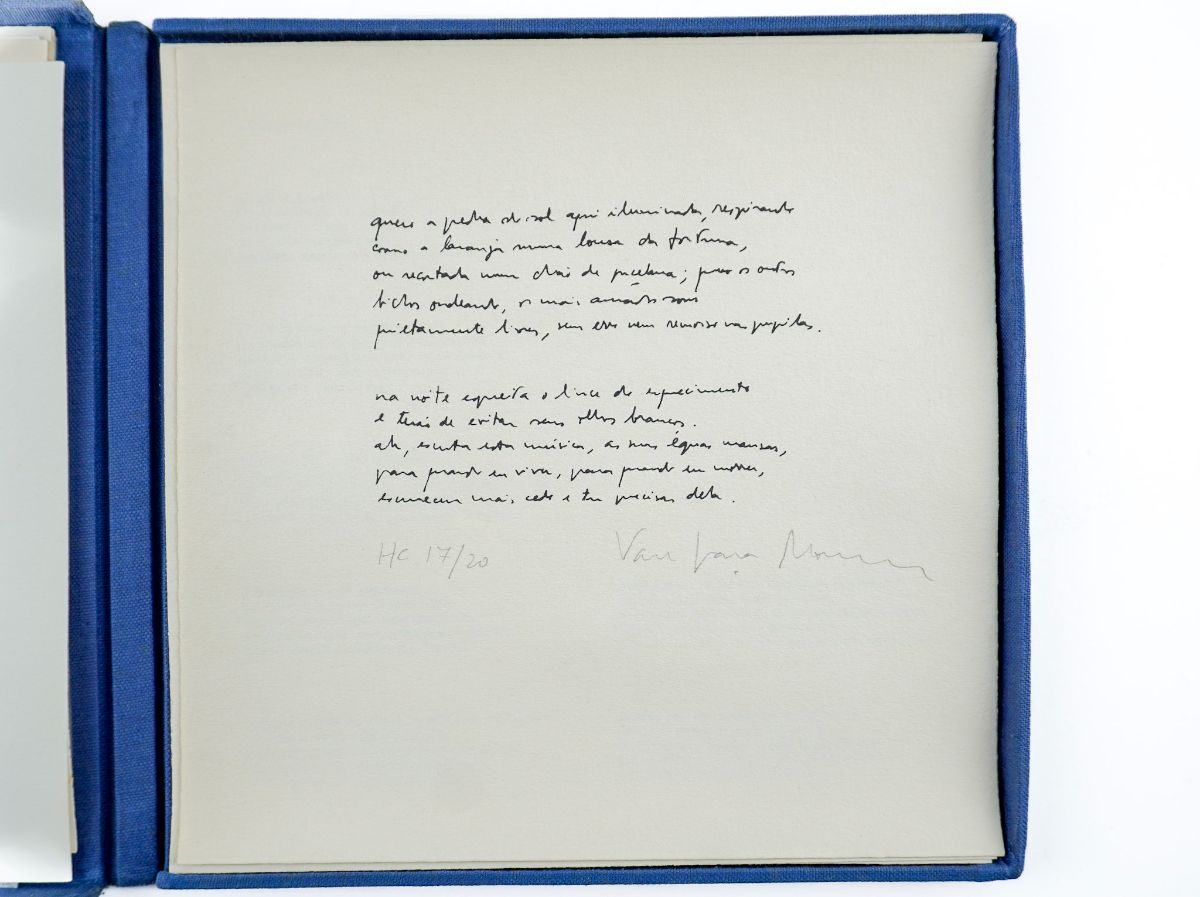 quero a pedra do sol aqui iluminada, respirando
como a laranja numa lousa da fortuna,
ou recortada num chão de porcelana; quero os outros
bichos ondeando, os mais amados sons
quietamente livres, sem eros nem remorso nas pupilas.
na noite espreita o lince do esquecimento
e terás de evitar seus olhos brancos.
ah, escuta esta música, as suas éguas mansas,
para quando eu viver, para quando eu morrer,
escurecem mais cedo e tu precisas dela.
HC 17/20
Vasco Graça Moura